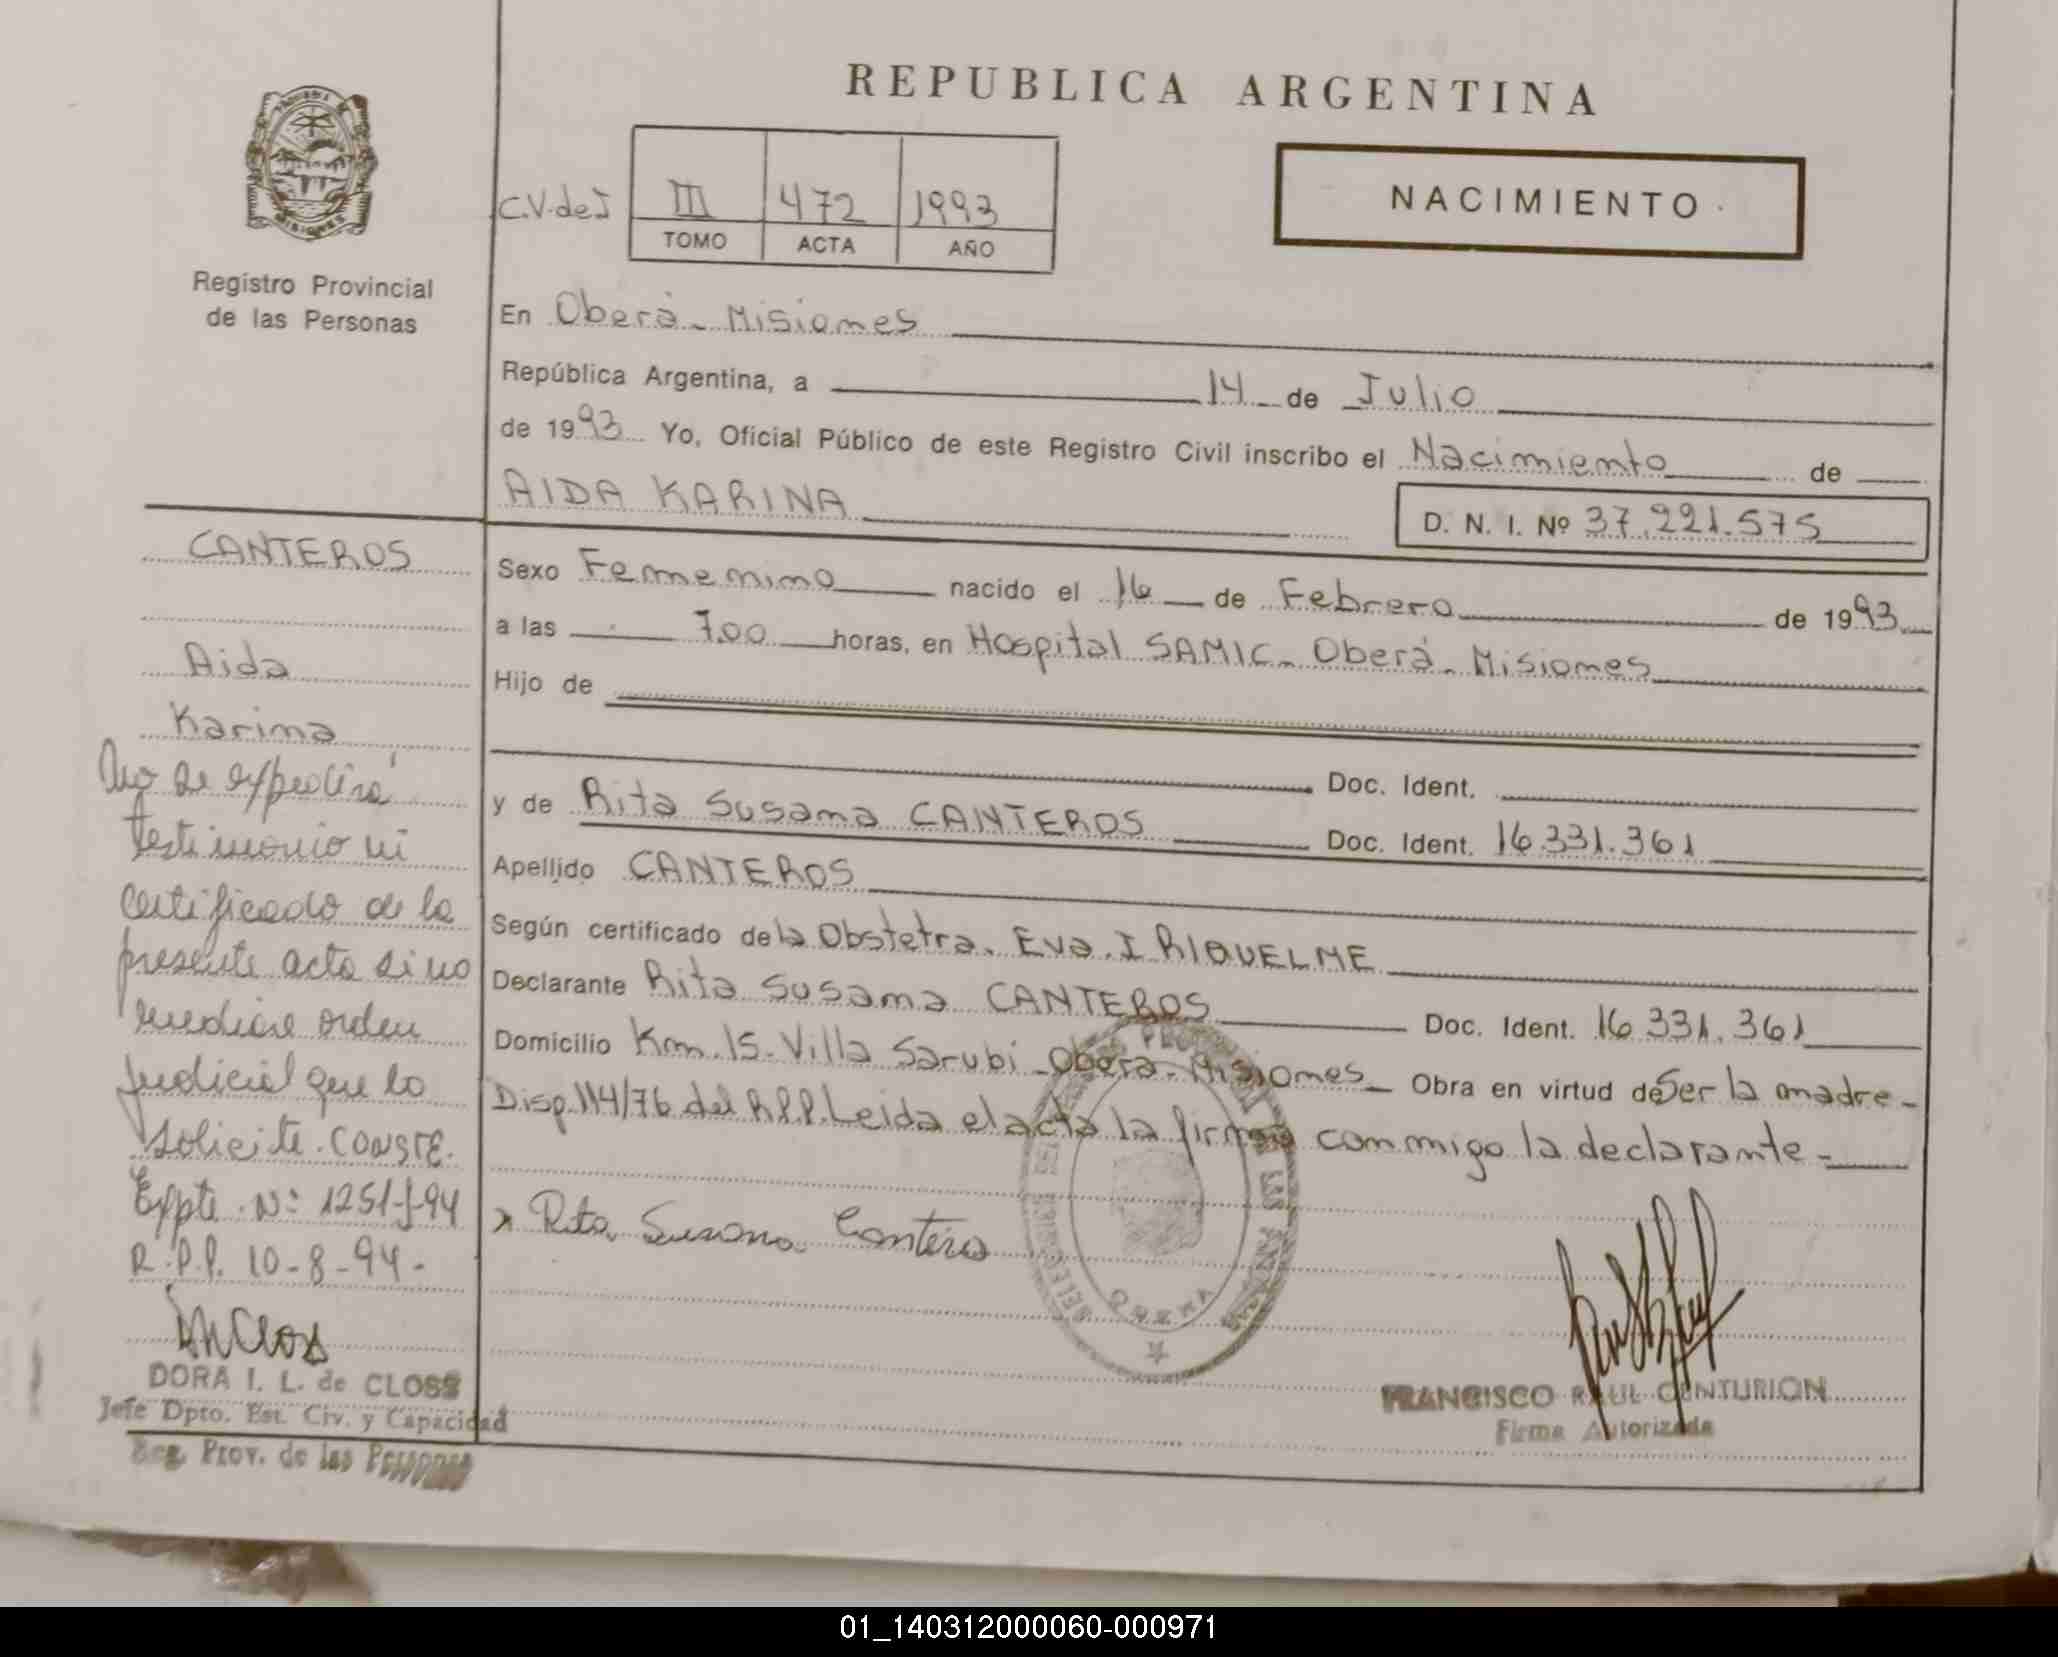 REPUBLICA ARGENTINA
PROVINCIA DE
MISIONES
Registro Provincial
de las Personas
C.V.de J
III 472 1993
TOMO ACTA AÑO
NACIMIENTO
En Oberá - Misiones
República Argentina, a 14 de Julio
de 1993 Yo, Oficial Público de este Registro Civil inscribo el Nacimiento de
AIDA KARINA
D. N. I. Nº 37.221.575
Sexo Femenino nacido el 16 de Febrero de 1993
a las 7.00 horas, en Hospital SAMIC - Oberá - Misiones
Hijo de
Doc. Ident.
y de Rita Susana CANTEROS Doc. Ident. 16.331.361
Apellido CANTEROS
Según certificado de la Obstetra. Eva. I RIQUELME
Declarante Rita Susana CANTEROS Doc. Ident. 16.331.361
Domicilio Km. 15 - Villa Sarubi - Oberá - Misiones - Obra en virtud de Ser la madre -
Disp. 114/76 del R.P.P. Leida el acta la firma conmigo la declarante -
x Rita Susana Cantero
FRANCISCO RAUL CENTURION
Firma Autorizada
CANTEROS
Aida
Karina
No se expedirá
testimonio ni
certificado de la
presente acta si no
mediare orden
judicial que lo
solicite. CONSTE.
Expte. Nº: 1251-J-94
R.P.P. 10-8-94-
DORA I. L. de CLOSS
Jefe Dpto. Est. Civ. y Capacidad
Reg. Prov. de las Personas
01_140312000060-000971